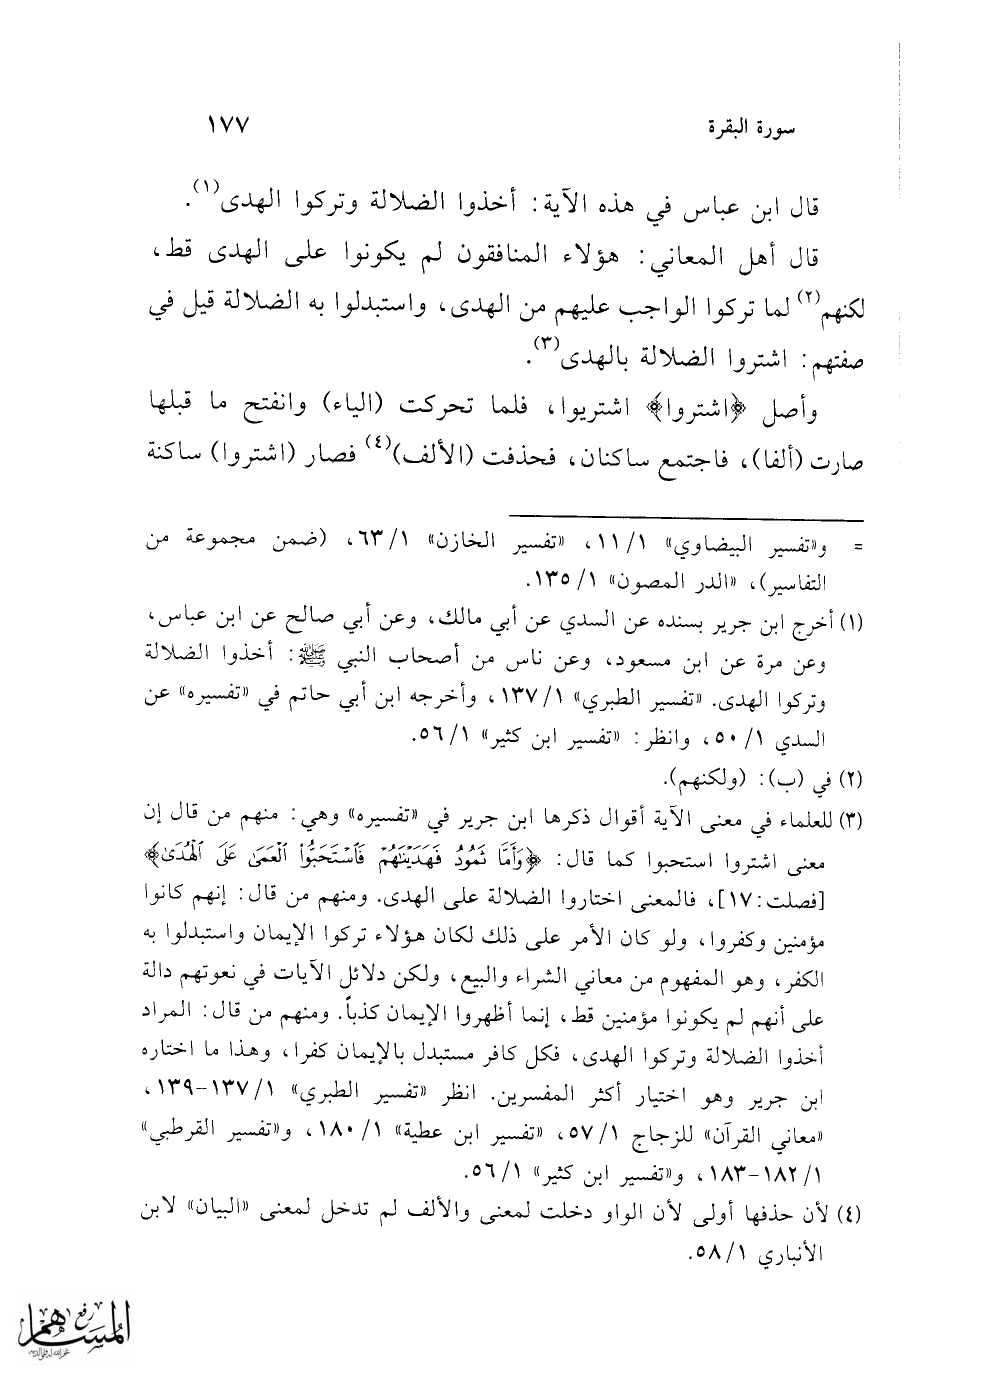 سورة البقرة ١٧٧
قال ابن عباس في هذه الآية: أخذوا الضلالة وتركوا الهدى(١).
قال أهل المعاني: هؤلاء المنافقون لم يكونوا على الهدى قط،
لكنهم(٢) لما تركوا الواجب عليهم من الهدى، واستبدلوا به الضلالة قيل في
صفتهم: اشتروا الضلالة بالهدى(٣).
وأصل ﴿اشتروا﴾ اشتريوا، فلما تحركت (الياء) وانفتح ما قبلها
صارت (ألفا)، فاجتمع ساكنان، فحذفت (الألف)(٤) فصار (اشتروا) ساكنة
= و«تفسير البيضاوي» ١/ ١١، «تفسير الخازن» ١/ ٦٣، (ضمن مجموعة من
التفاسير)، «الدر المصون» ١/ ١٣٥.
(١) أخرج ابن جرير بسنده عن السدي عن أبي مالك، وعن أبي صالح عن ابن عباس،
وعن مرة عن ابن مسعود، وعن ناس من أصحاب النبي ﷺ: أخذوا الضلالة
وتركوا الهدى. «تفسير الطبري» ١/ ١٣٧، وأخرجه ابن أبي حاتم في «تفسيره» عن
السدي ١/ ٥٠، وانظر: «تفسير ابن كثير» ١/ ٥٦.
(٢) في (ب): (ولكنهم).
(٣) للعلماء في معنى الآية أقوال ذكرها ابن جرير في «تفسيره» وهي: منهم من قال إن
معنى اشتروا استحبوا كما قال: ﴿وَأَمَّا ثَمُودُ فَهَدَيْنَٰهُمْ فَٱسْتَحَبُّوا۟ ٱلْعَمَىٰ عَلَى ٱلْهُدَىٰ﴾
[فصلت: ١٧]، فالمعنى اختاروا الضلالة على الهدى. ومنهم من قال: إنهم كانوا
مؤمنين وكفروا، ولو كان الأمر على ذلك لكان هؤلاء تركوا الإيمان واستبدلوا به
الكفر، وهو المفهوم من معاني الشراء والبيع، ولكن دلائل الآيات في نعوتهم دالة
على أنهم لم يكونوا مؤمنين قط، إنما أظهروا الإيمان كذباً. ومنهم من قال: المراد
أخذوا الضلالة وتركوا الهدى، فكل كافر مستبدل بالإيمان كفرا، وهذا ما اختاره
ابن جرير وهو اختيار أكثر المفسرين. انظر «تفسير الطبري» ١/ ١٣٧-١٣٩،
«معاني القرآن» للزجاج ١/ ٥٧، «تفسير ابن عطية» ١/ ١٨٠، و«تفسير القرطبي»
١/ ١٨٢-١٨٣، و«تفسير ابن كثير» ١/ ٥٦.
(٤) لأن حذفها أولى لأن الواو دخلت لمعنى والألف لم تدخل لمعنى «البيان» لابن
الأنباري ١/ ٥٨.
رفع
المساهم